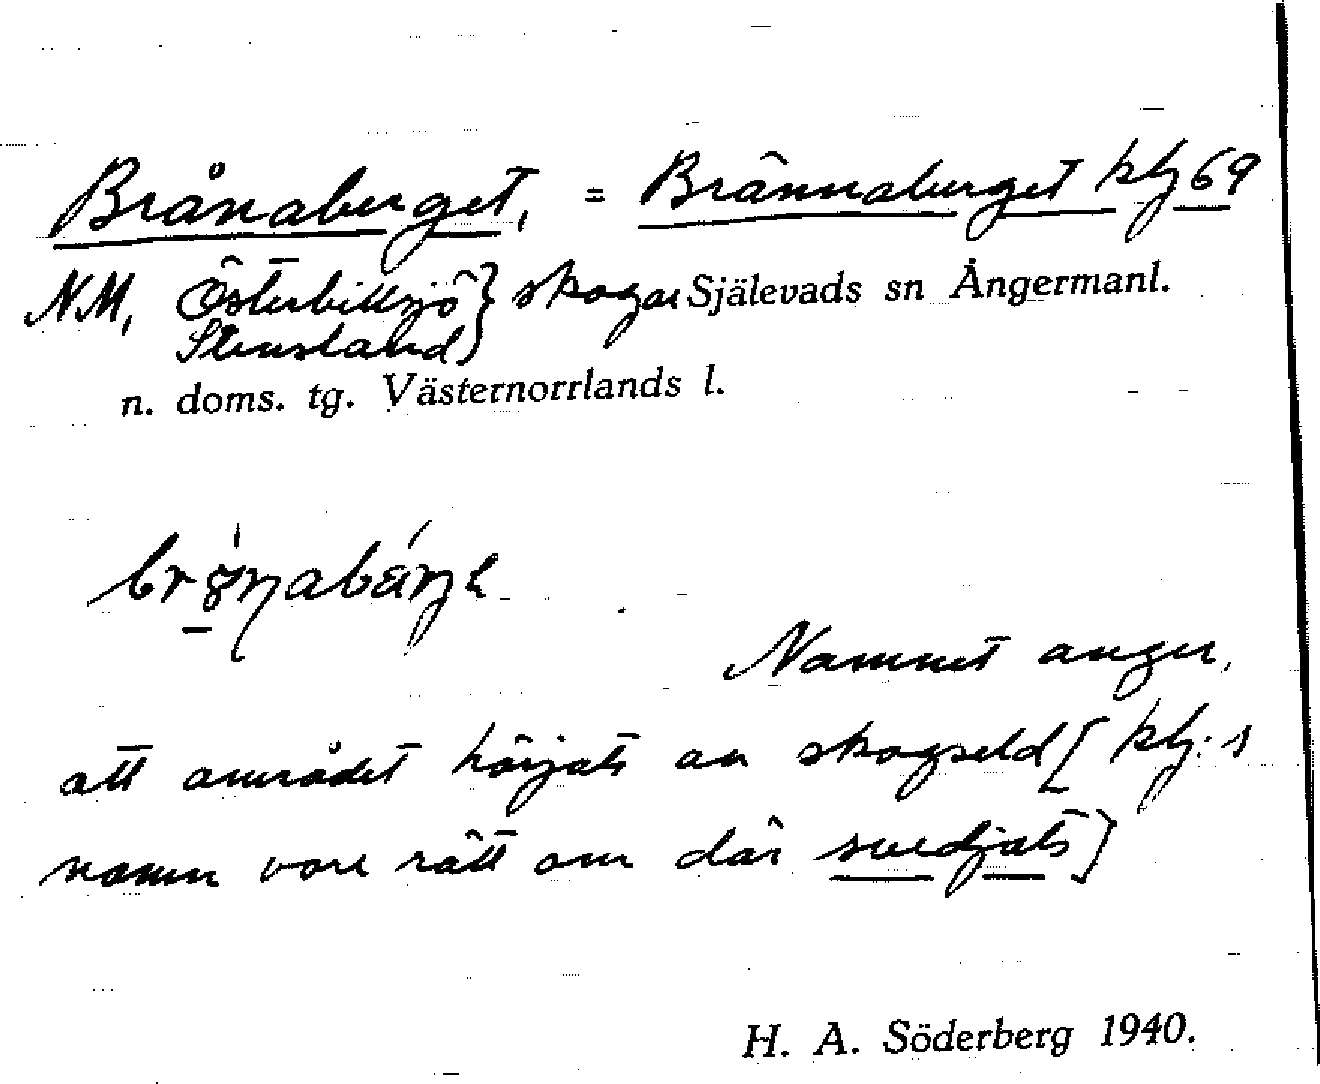 Brånaberget, = Brännaberget kbl 69
N.M, Österbiksjö } skogar Själevads sn Ångermanl.
Stensland }
n. doms. tg. Västernorrlands l.
Namnet anger,
att området härjats av skogseld [kbl:s
namn vore rätt om där svedjats]
H. A. Söderberg 1940.